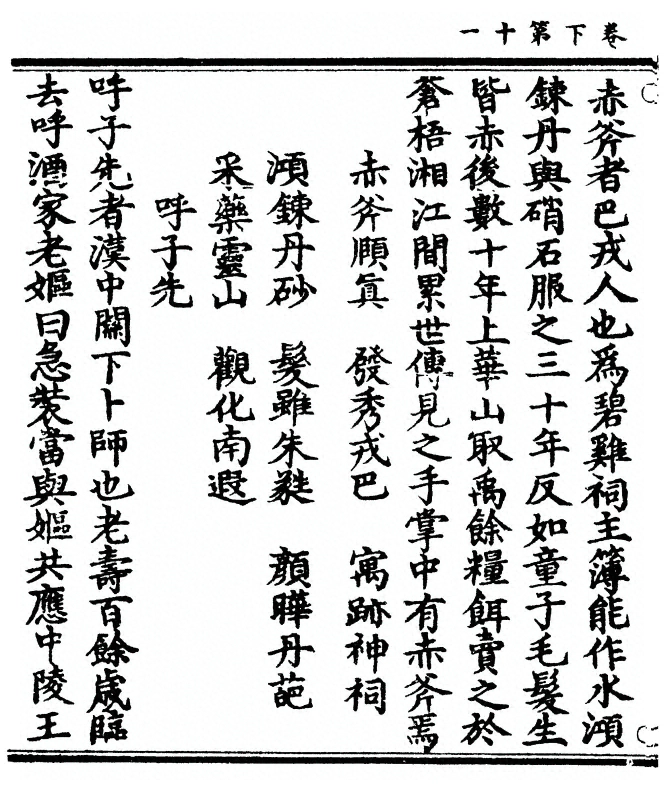 卷下第十一
赤斧者巴戎人也為碧雞祠主簿能作水澒
鍊丹與硝石服之三十年反如童子毛髮生
皆赤後數十年上華山取禹餘糧餌賣之於
蒼梧湘江間累世傳見之手掌中有赤斧焉
赤斧頤真 發秀戎巴 寓跡神祠
澒鍊丹砂 髮雖朱蕤 顏曄丹葩
采藥靈山 觀化南遐
呼子先
呼子先者漢中關下卜師也老壽百餘歲臨
去呼酒家老嫗曰急裝當與嫗共應中陵王